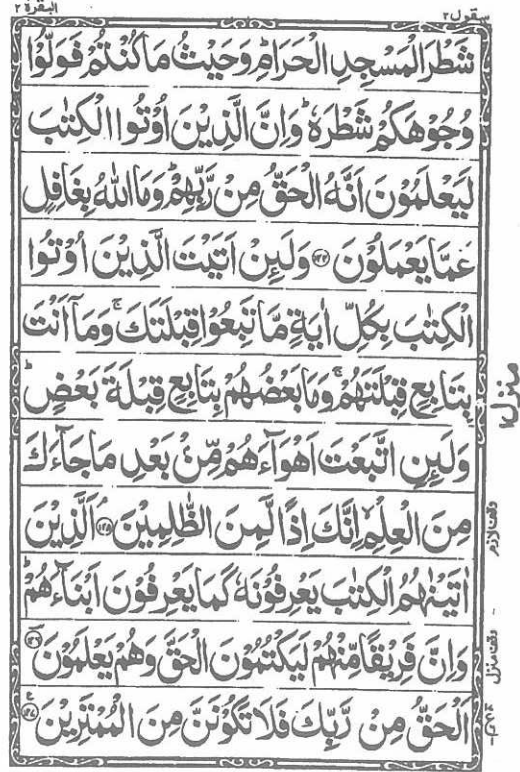 سيقول ٢
البقرة ٢
شَطْرَ الْمَسْجِدِ الْحَرَامِ ؕ وَحَيْثُ مَا كُنْتُمْ فَوَلُّوْا
وُجُوْهَكُمْ شَطْرَهٗ ؕ وَاِنَّ الَّذِيْنَ اُوْتُوا الْكِتٰبَ
لَيَعْلَمُوْنَ اَنَّهُ الْحَقُّ مِنْ رَّبِّهِمْ ؕ وَمَا اللّٰهُ بِغَافِلٍ
عَمَّا يَعْمَلُوْنَ ﴿۱۴۴﴾ وَلَىِٕنْ اَتَيْتَ الَّذِيْنَ اُوْتُوا
الْكِتٰبَ بِكُلِّ اٰيَةٍ مَّا تَبِعُوْا قِبْلَتَكَ ۚ وَمَاۤ اَنْتَ
بِتَابِعٍ قِبْلَتَهُمْ ۚ وَمَا بَعْضُهُمْ بِتَابِعٍ قِبْلَةَ بَعْضٍ ؕ
وَلَىِٕنِ اتَّبَعْتَ اَهْوَآءَهُمْ مِّنْۢ بَعْدِ مَا جَآءَكَ
مِنَ الْعِلْمِ ۙ اِنَّكَ اِذًا لَّمِنَ الظّٰلِمِيْنَ ﴿۱۴۵﴾ۘ اَلَّذِيْنَ
اٰتَيْنٰهُمُ الْكِتٰبَ يَعْرِفُوْنَهٗ كَمَا يَعْرِفُوْنَ اَبْنَآءَهُمْ ؕ
وَاِنَّ فَرِيْقًا مِّنْهُمْ لَيَكْتُمُوْنَ الْحَقَّ وَهُمْ يَعْلَمُوْنَ ﴿۱۴۶﴾ؔ
اَلْحَقُّ مِنْ رَّبِّكَ فَلَا تَكُوْنَنَّ مِنَ الْمُمْتَرِيْنَ ﴿۱۴۷﴾
منزل۱
وقف لازم
وقف منزل